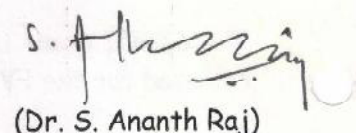 (Dr. S. Ananth Raj)